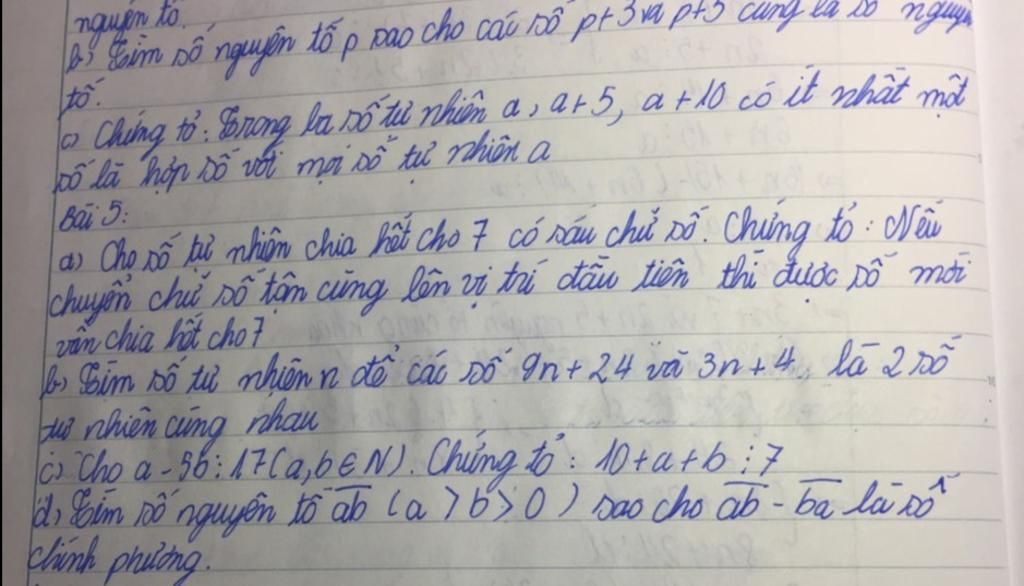 nguyên tố.
b) Tìm số nguyên tố p sao cho các số p+3 và p+5 cũng là số nguyên
tố.
c) Chứng tỏ: Trong ba số tự nhiên a, a+5, a+10 có ít nhất một
số là hợp số với mọi số tự nhiên a
Bài 5:
a) Cho số tự nhiên chia hết cho 7 có sáu chữ số. Chứng tỏ: Nếu
chuyển chữ số tận cùng lên vị trí đầu tiên thì được số mới
vẫn chia hết cho 7
b) Tìm số tự nhiên n để các số 9n+24 và 3n+4 là 2 số
tự nhiên cùng nhau
c) Cho a-5b⋮17 (a,b∈N). Chứng tỏ: 10+a+b⋮7
d) Tìm số nguyên tố a̅b̅ (a>b>0) sao cho a̅b̅ - b̅a̅ là số
chính phương.